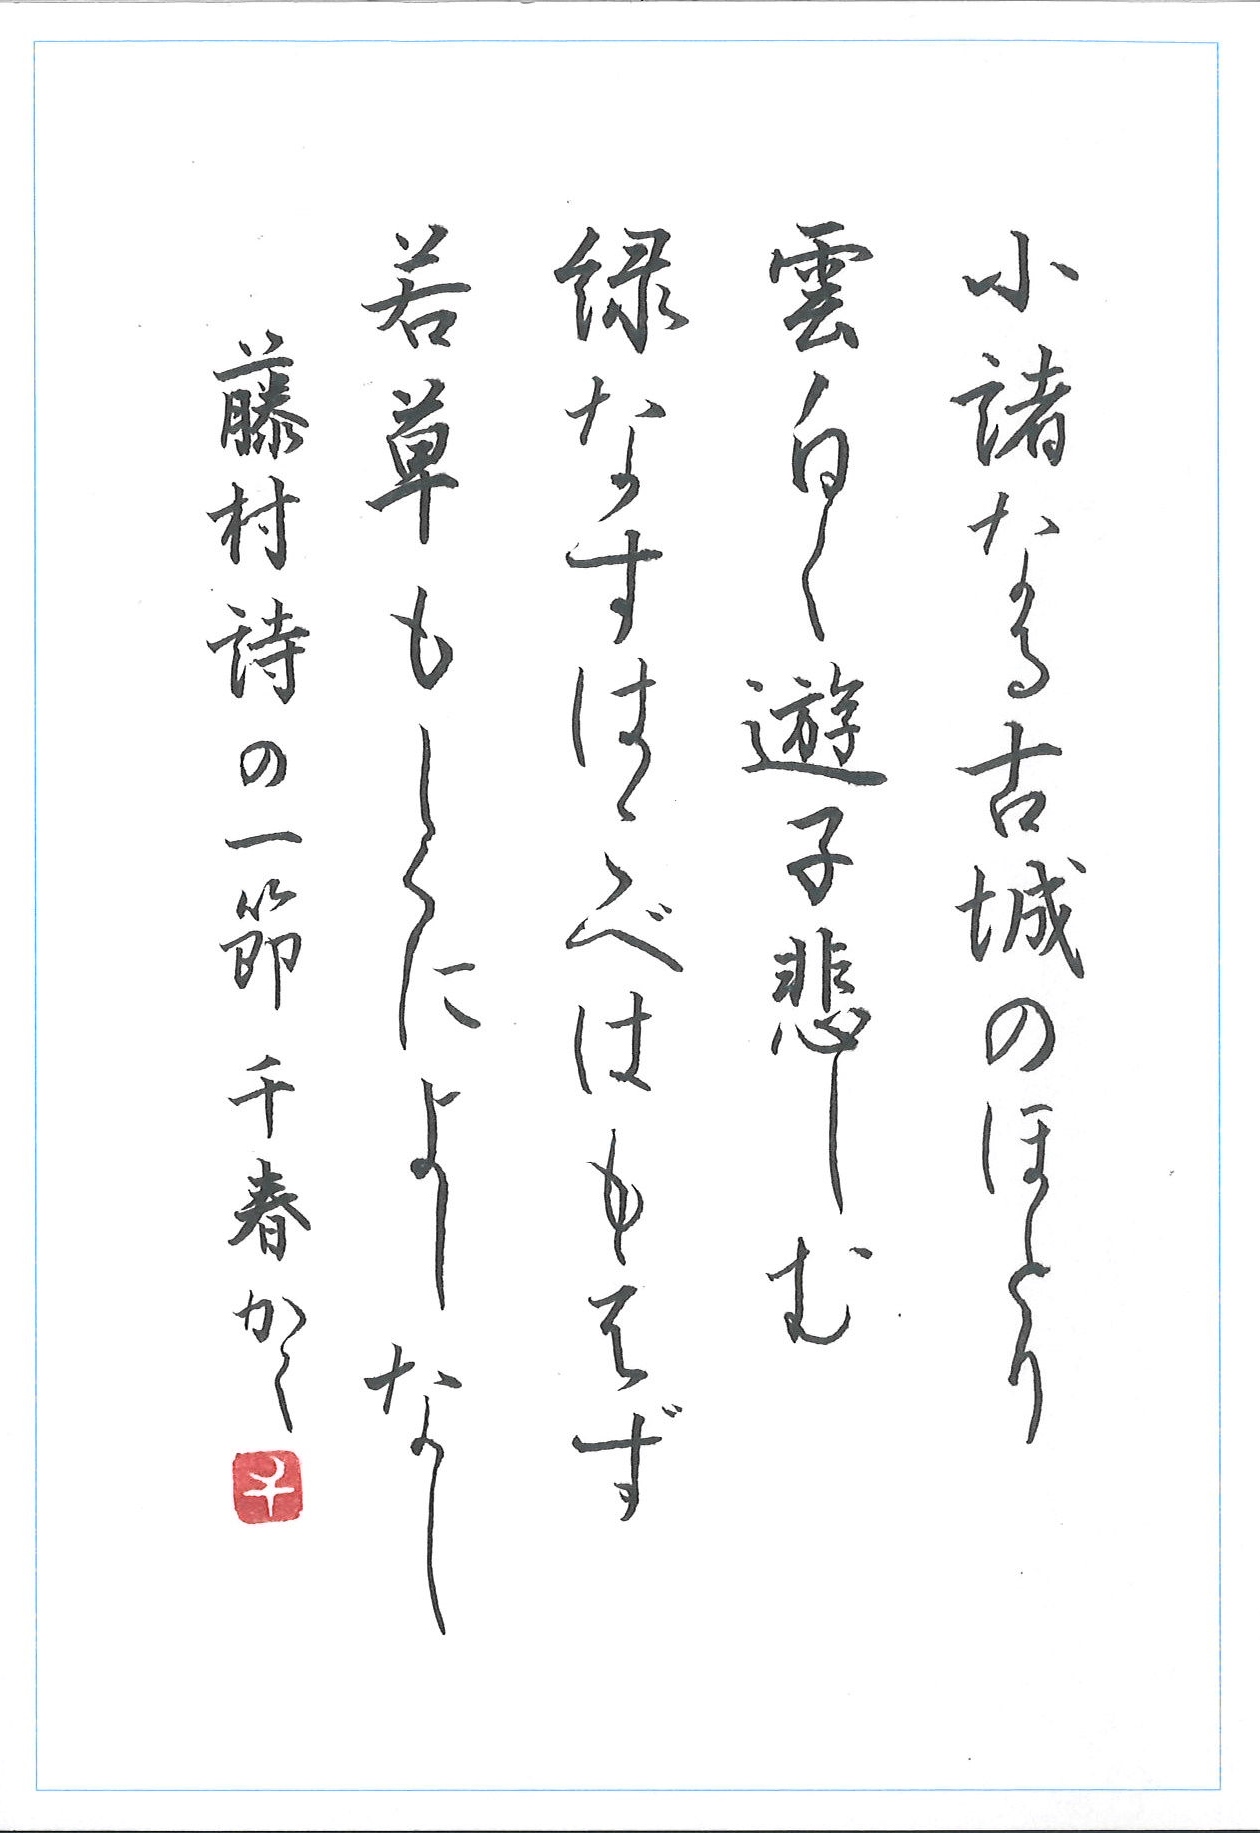 小諸なる古城のほとり
雲白く遊子悲しむ
緑なすはゝこべはもえず
若草もしくによしなし
藤村詩の一節 千春かく
千